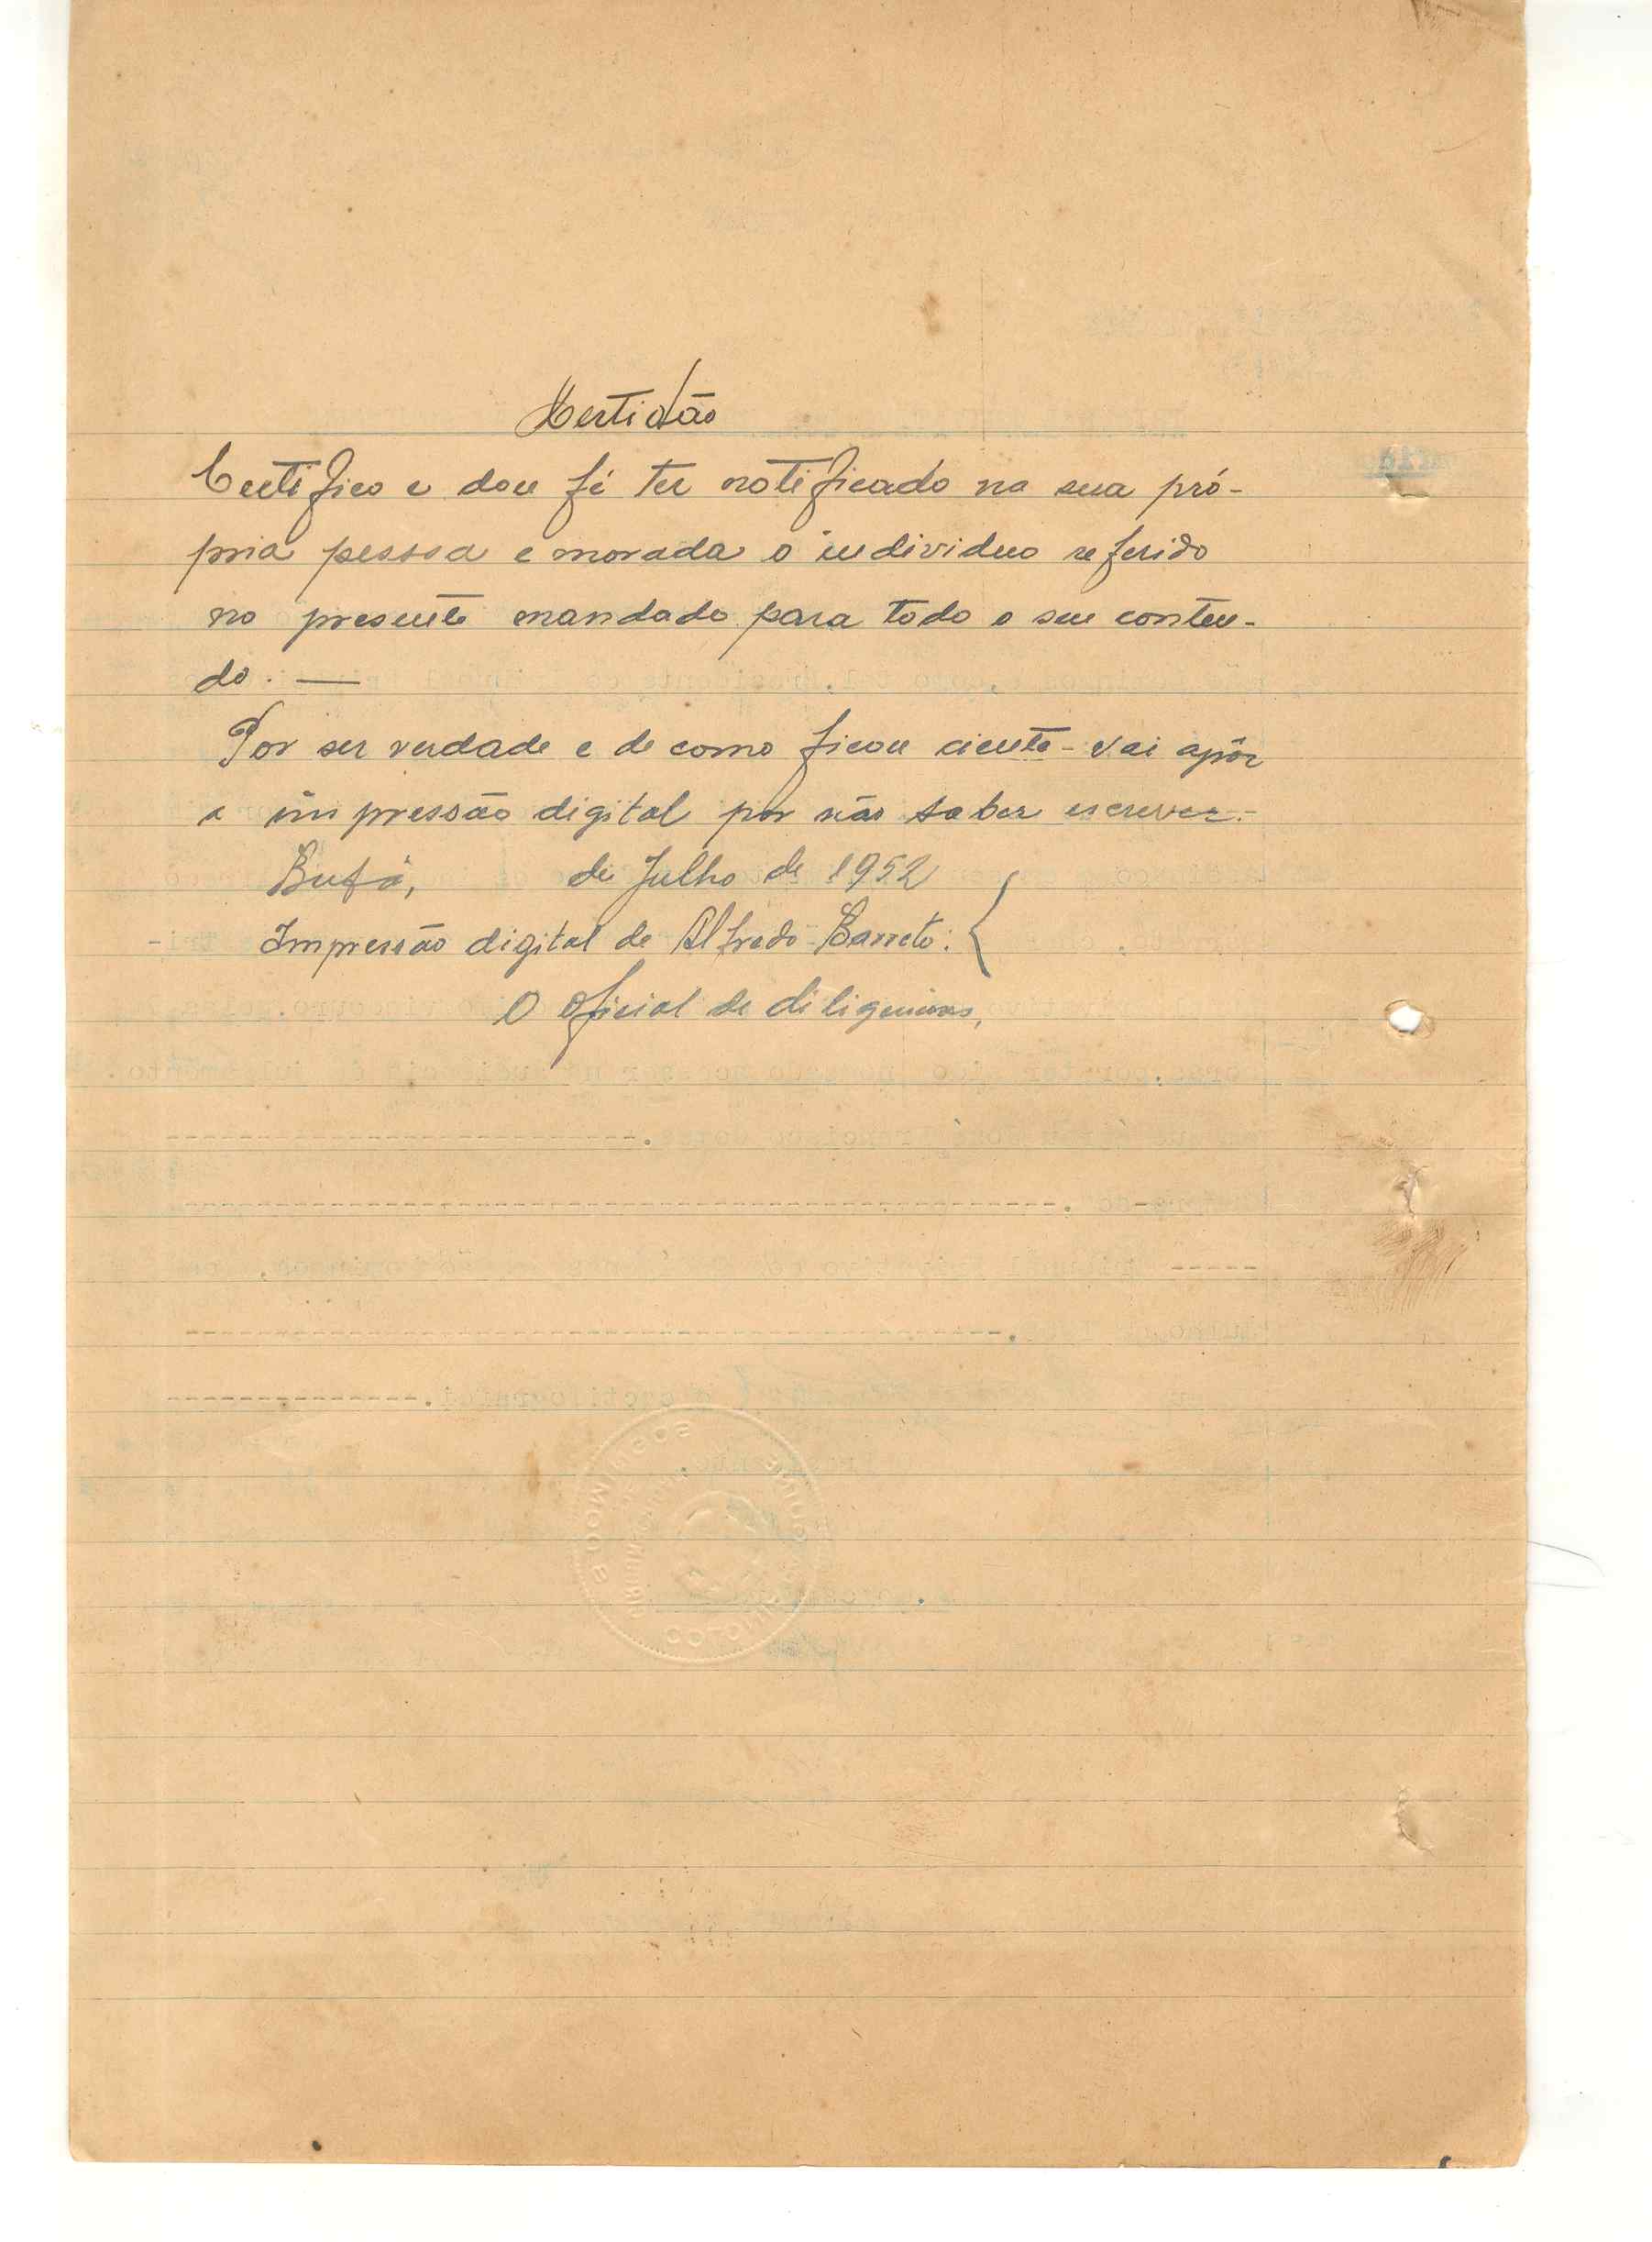 Certidão
Certifico e dou fé ter notificado na sua pró-
pria pessoa e morada o individuo referido
no presente mandado para todo o seu conteu-
do. —
Por ser verdade e de como ficou ciente - vai apôr
a impressão digital por não saber escrever.-
Bufa, de Julho de 1952
Impressão digital de Alfredo Barreto: {
O Oficial de diligencias,